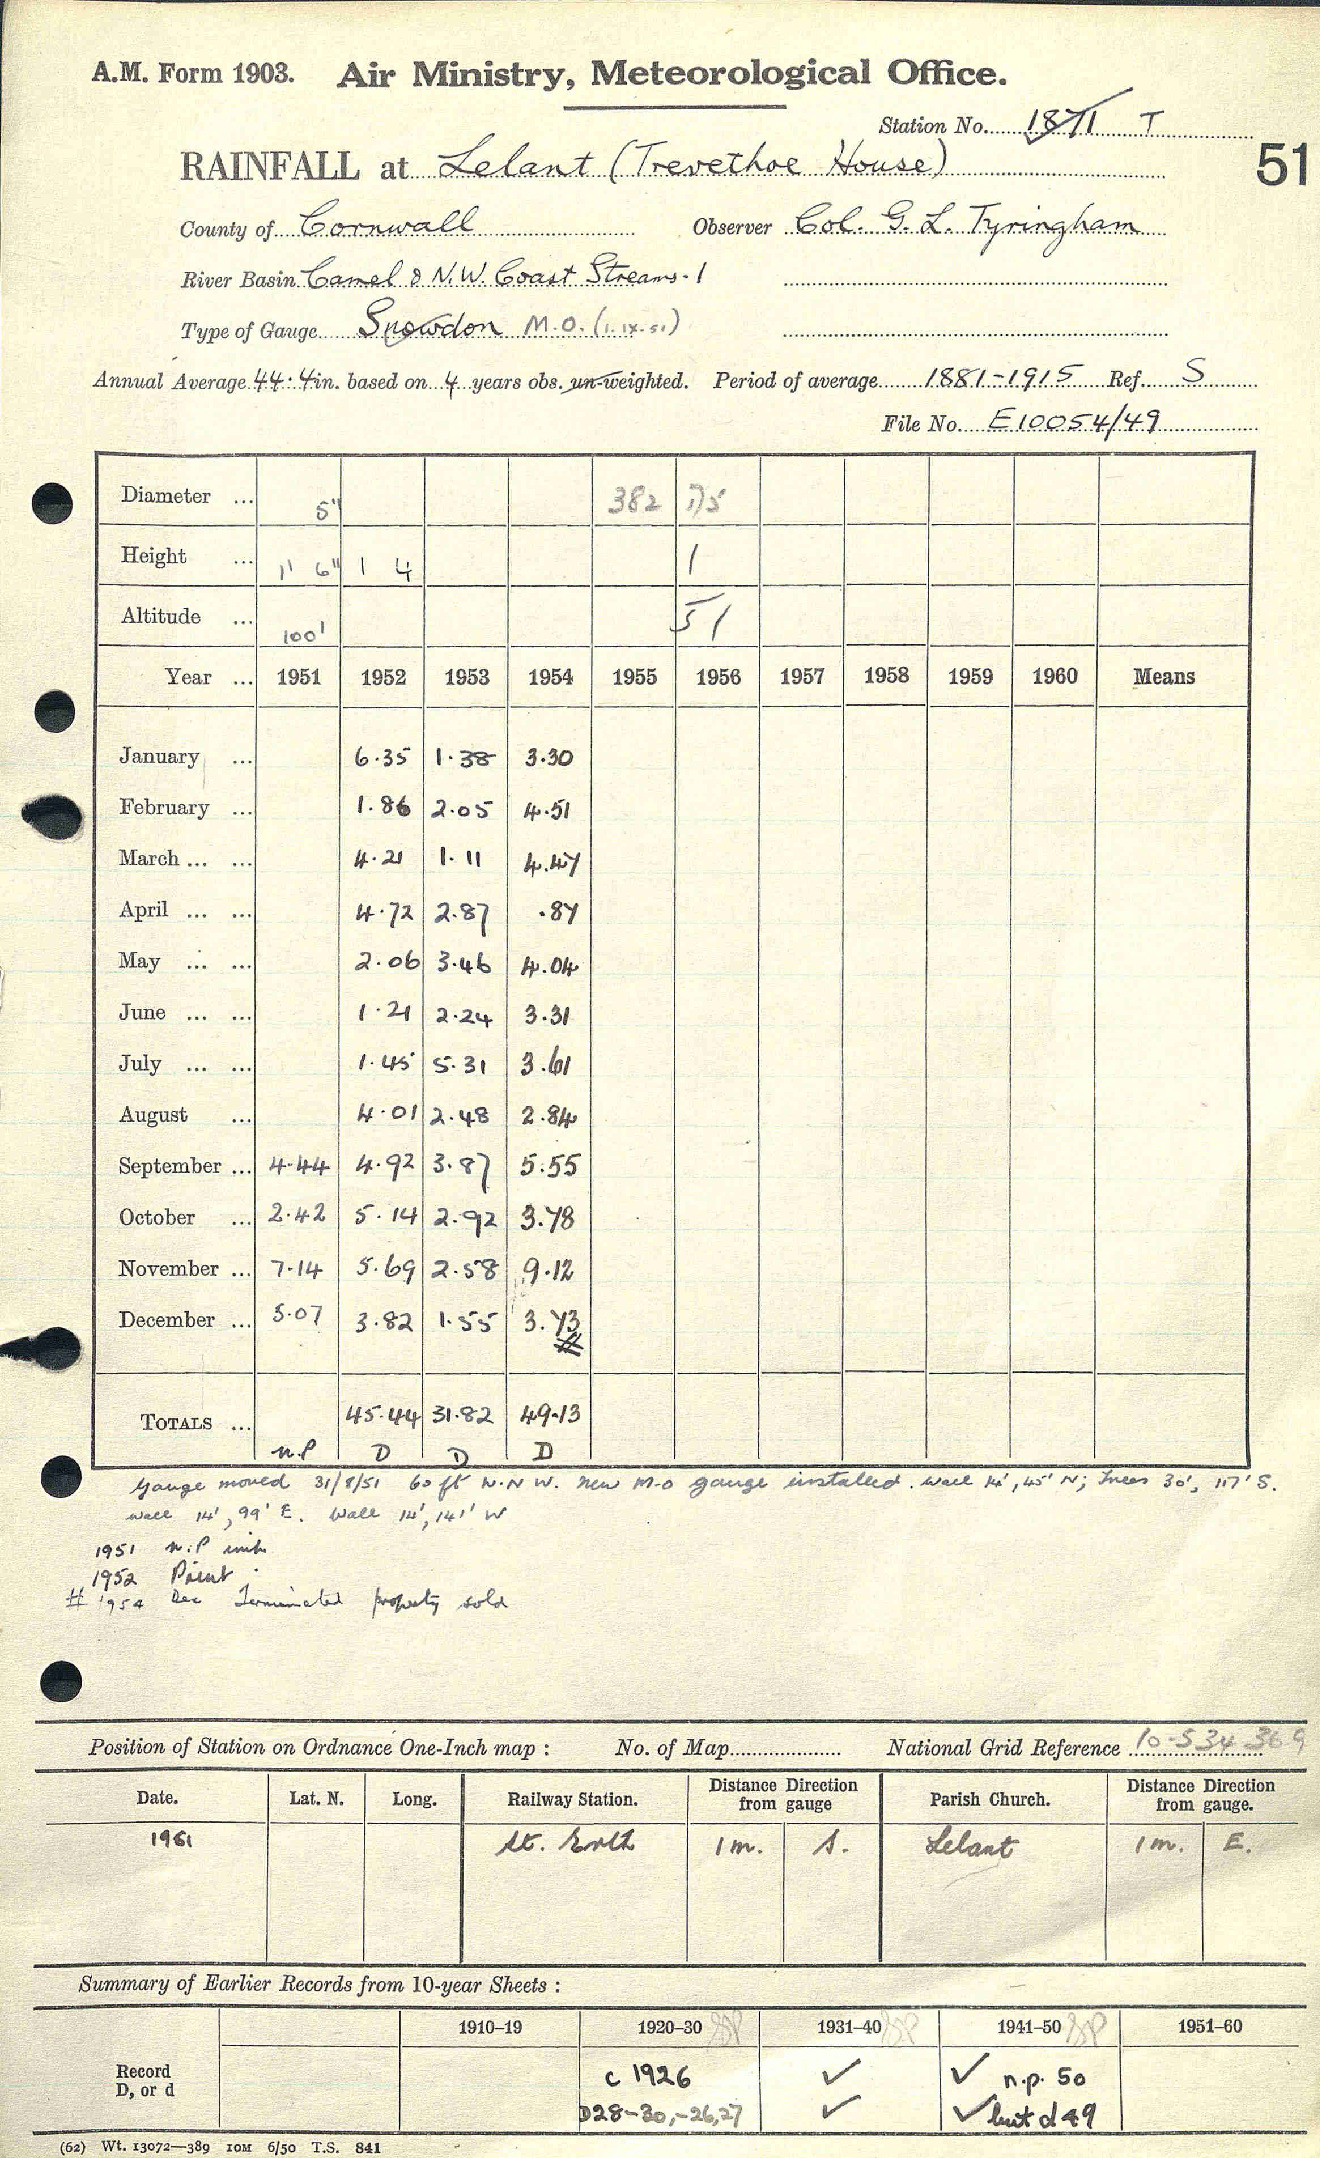 A.M. Form 1903. Air Ministry, Meteorological Office.
Station No. 1871 T
51
RAINFALL at Lelant (Trevethoe House)
County of Cornwall Observer Col. G. L. Tyringham
River Basin Camel & N.W. Coast Streams - 1
Type of Gauge Snowdon M.O. (1.IX.51)
Annual Average 44.4 in. based on 4 years obs. un-weighted. Period of average 1881-1915 Ref. S
File No. E10054/49
Diameter ... 5" 382 /75
Height ... 1' 6" 1 4 1
Altitude ... 100' 51
Year ... 1951 1952 1953 1954 1955 1956 1957 1958 1959 1960 Means
January ... 6.35 1.38 3.30
February ... 1.86 2.05 4.51
March ... ... 4.21 1.11 4.47
April ... ... 4.72 2.87 .87
May ... ... 2.06 3.46 4.04
June ... ... 1.21 2.24 3.31
July ... ... 1.45 5.31 3.61
August ... 4.01 2.48 2.84
September ... 4.44 4.92 3.87 5.55
October ... 2.42 5.14 2.92 3.78
November ... 7.14 5.69 2.58 9.12
December ... 5.07 3.82 1.55 3.73
#
TOTALS ... 45.44 31.82 49.13
n.P D D D
Gauge moved 31/8/51 60 ft N.N W. New M-O gauge installed. Wall 14', 45' N; Trees 30', 117' S.
Wall 14', 99' E. Wall 14', 141' W
1951 n.P
1952 Print
# 1954 Dec Terminated property sold
Position of Station on Ordnance One-Inch map : No. of Map National Grid Reference 10-534 369
Date. Lat. N. Long. Railway Station. Distance from gauge Direction Parish Church. Distance from gauge. Direction
1951 St. Erth 1 m. S. Lelant 1 m. E.
Summary of Earlier Records from 10-year Sheets :
1910–19 1920–30 1931–40 1941–50 1951–60
Record c 1926 ✓ ✓ n.p. 50
D, or d D28-30,-26,27 ✓ ✓ but d 49
(62) Wt. 13072—389 10M 6/50 T.S. 841